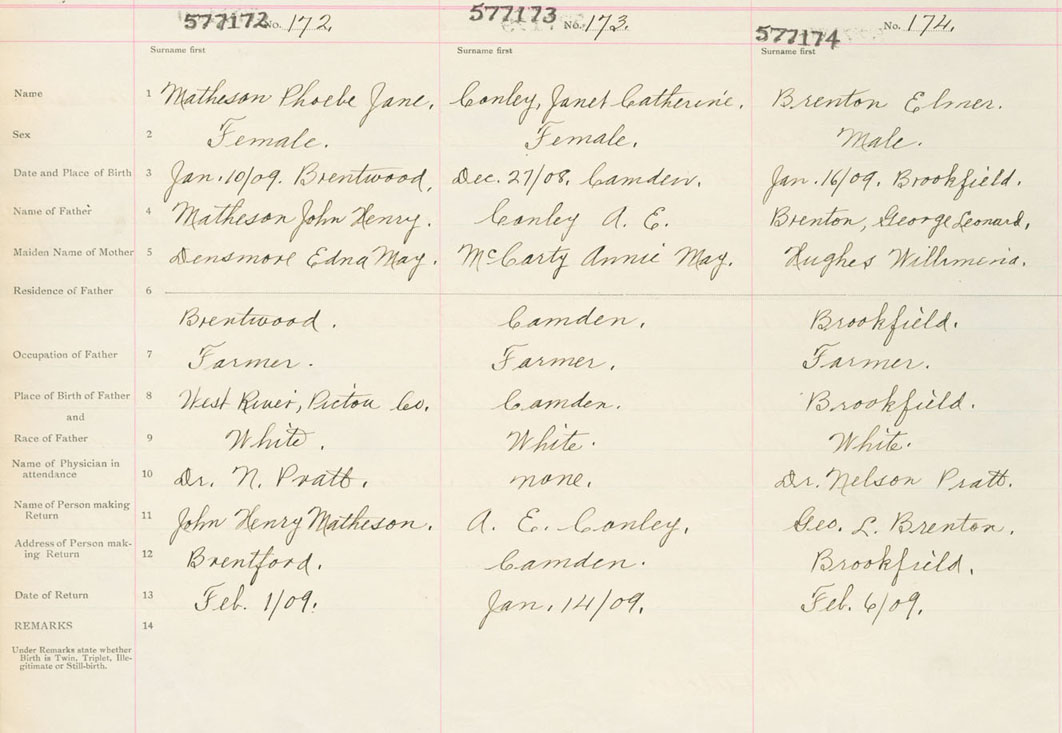 577172 No. 172. 577173 No. 173. 577174 No. 174.
Surname first Surname first Surname first
Name 1 Matheson Phoebe Jane. Conley, Janet Catherine. Brenton Elmer.
Sex 2 Female. Female. Male.
Date and Place of Birth 3 Jan. 10/09. Brentwood. Dec. 27/08. Camden. Jan. 16/09. Brookfield.
Name of Father 4 Matheson John Henry. Conley A. E. Brenton, George Leonard.
Maiden Name of Mother 5 Densmore Edna May. McCarty Annie May. Hughes Willimenia.
Residence of Father 6
Brentwood. Camden. Brookfield.
Occupation of Father 7 Farmer. Farmer. Farmer.
Place of Birth of Father 8 West River, Pictou Co. Camden. Brookfield.
and
Race of Father 9 White. White. White.
Name of Physician in
attendance 10 Dr. N. Pratt. none. Dr. Nelson Pratt.
Name of Person making
Return 11 John Henry Matheson. A. E. Conley. Geo. L. Brenton.
Address of Person mak-
ing Return 12 Brentford. Camden. Brookfield.
Date of Return 13 Feb. 1/09. Jan. 14/09. Feb. 6/09.
REMARKS 14
Under Remarks state whether
Birth is Twin, Triplet, Ille-
gitimate or Still-birth.